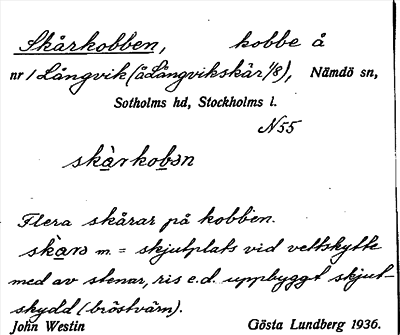 Skårkobben, kobbe å
nr 1 Långvik (å Långvikskär 1/8), Nämdö sn,
Sotholms hd, Stockholms l.
N55
skàrkobən
Flera skårar på kobben.
skàrə m. = skjutplats vid vettskytte
med av stenar, ris e.d. uppbyggt skjut-
skydd (bröstvärn).
John Westin Gösta Lundberg 1936.